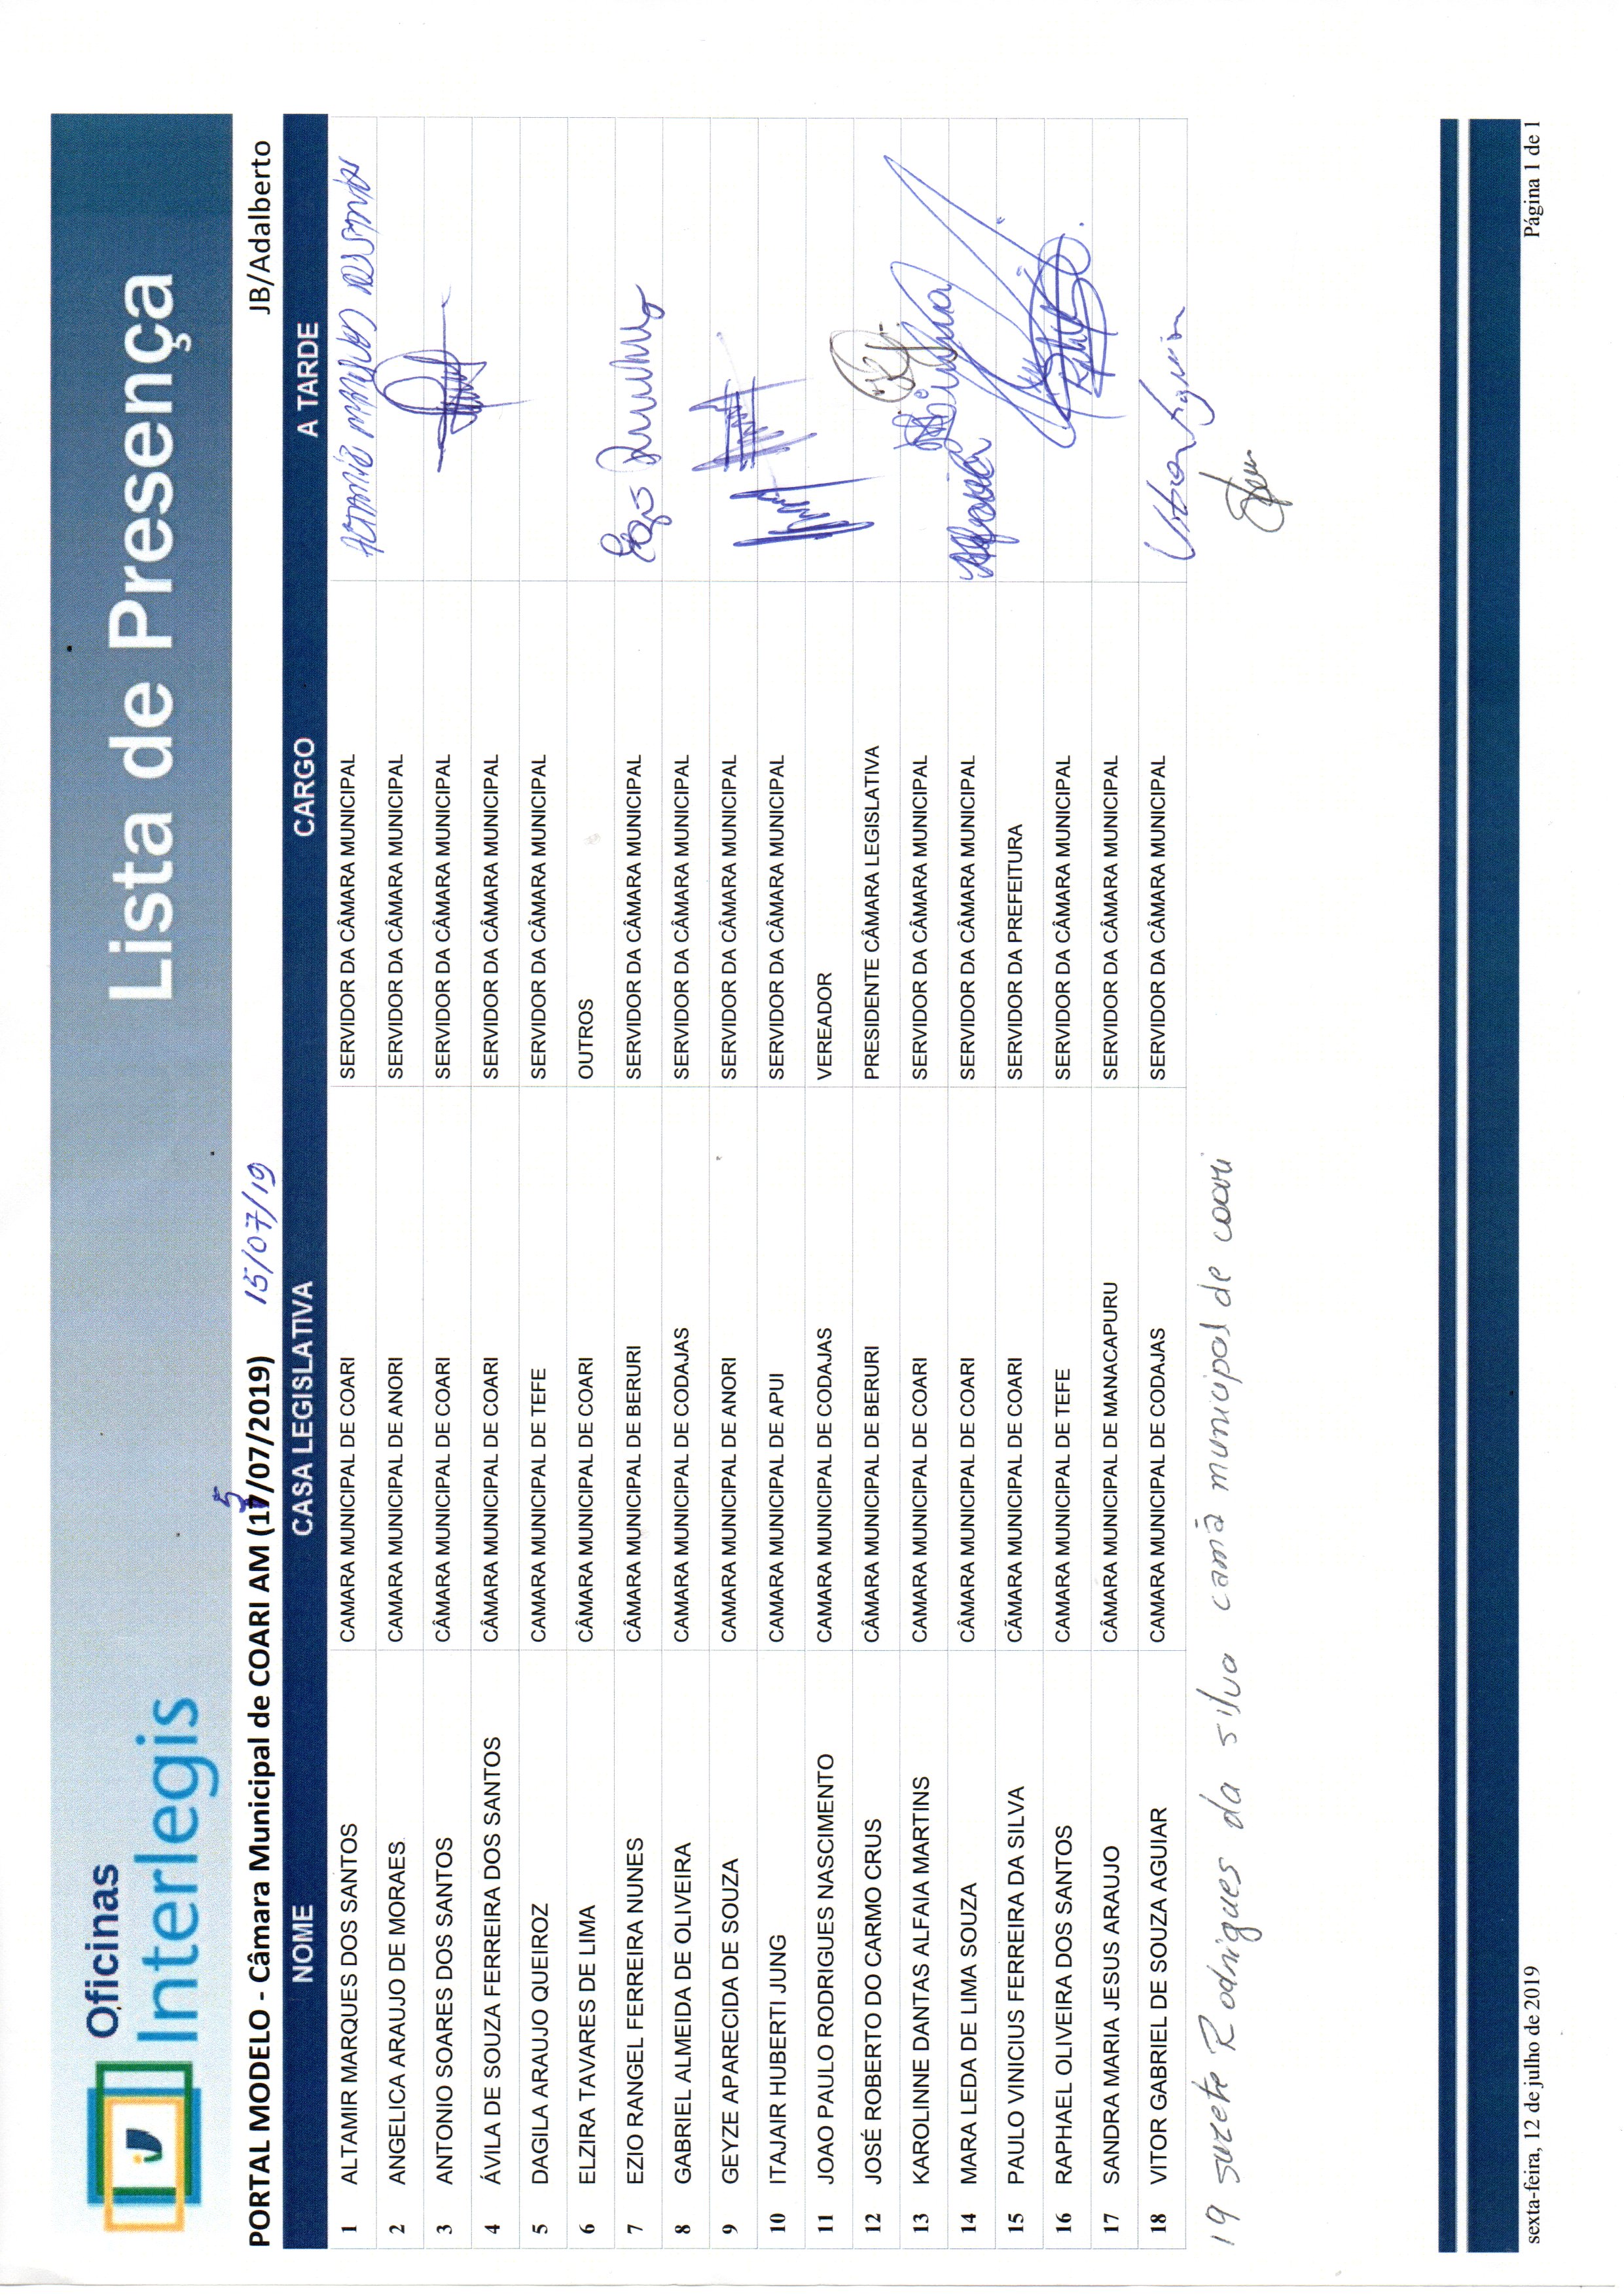 Oficinas
Interlegis
Lista de Presença
PORTAL MODELO - Câmara Municipal de COARI AM (17/07/2019) 15/07/19 JB/Adalberto
5
NOME CASA LEGISLATIVA CARGO A TARDE
1 ALTAMIR MARQUES DOS SANTOS CAMARA MUNICIPAL DE COARI SERVIDOR DA CÂMARA MUNICIPAL
2 ANGELICA ARAUJO DE MORAES CAMARA MUNICIPAL DE ANORI SERVIDOR DA CÂMARA MUNICIPAL
3 ANTONIO SOARES DOS SANTOS CÂMARA MUNICIPAL DE COARI SERVIDOR DA CÂMARA MUNICIPAL
4 ÁVILA DE SOUZA FERREIRA DOS SANTOS CÂMARA MUNICIPAL DE COARI SERVIDOR DA CÂMARA MUNICIPAL
5 DAGILA ARAUJO QUEIROZ CAMARA MUNICIPAL DE TEFE SERVIDOR DA CÂMARA MUNICIPAL
6 ELZIRA TAVARES DE LIMA CÂMARA MUNICIPAL DE COARI OUTROS
7 EZIO RANGEL FERREIRA NUNES CÂMARA MUNICIPAL DE BERURI SERVIDOR DA CÂMARA MUNICIPAL
8 GABRIEL ALMEIDA DE OLIVEIRA CAMARA MUNICIPAL DE CODAJAS SERVIDOR DA CÂMARA MUNICIPAL
9 GEYZE APARECIDA DE SOUZA CAMARA MUNICIPAL DE ANORI SERVIDOR DA CÂMARA MUNICIPAL
10 ITAJAIR HUBERTI JUNG CAMARA MUNICIPAL DE APUI SERVIDOR DA CÂMARA MUNICIPAL
11 JOAO PAULO RODRIGUES NASCIMENTO CAMARA MUNICIPAL DE CODAJAS VEREADOR
12 JOSÉ ROBERTO DO CARMO CRUS CÂMARA MUNICIPAL DE BERURI PRESIDENTE CÂMARA LEGISLATIVA
13 KAROLINNE DANTAS ALFAIA MARTINS CAMARA MUNICIPAL DE COARI SERVIDOR DA CÂMARA MUNICIPAL
14 MARA LEDA DE LIMA SOUZA CÂMARA MUNICIPAL DE COARI SERVIDOR DA CÂMARA MUNICIPAL
15 PAULO VINICIUS FERREIRA DA SILVA CÃMARA MUNICIPAL DE COARI SERVIDOR DA PREFEITURA
16 RAPHAEL OLIVEIRA DOS SANTOS CAMARA MUNICIPAL DE TEFE SERVIDOR DA CÂMARA MUNICIPAL
17 SANDRA MARIA JESUS ARAUJO CÂMARA MUNICIPAL DE MANACAPURU SERVIDOR DA CÂMARA MUNICIPAL
18 VITOR GABRIEL DE SOUZA AGUIAR CAMARA MUNICIPAL DE CODAJAS SERVIDOR DA CÂMARA MUNICIPAL
19 suzete Rodrigues da silva camã municipal de coari
sexta-feira, 12 de julho de 2019 Página 1 de 1